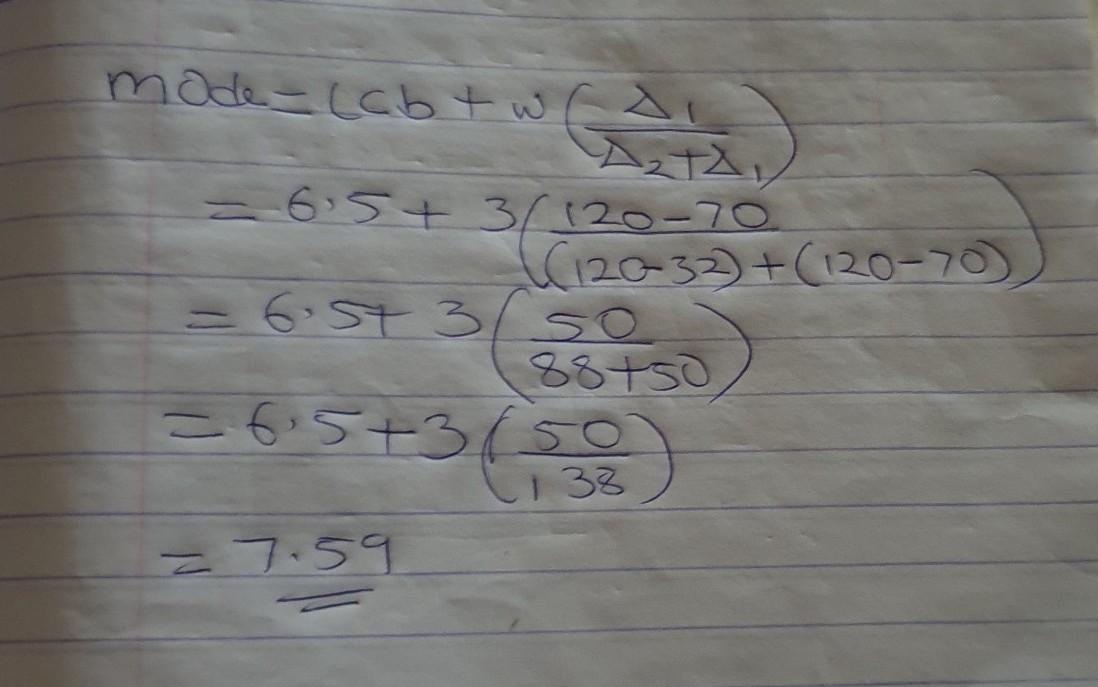 mode = Lcb + w (Δ₁ / Δ₂+Δ₁)
= 6.5 + 3 (120-70 / (120-32) + (120-70))
= 6.5 + 3 (50 / 88+50)
= 6.5 + 3 (50 / 138)
= 7.59